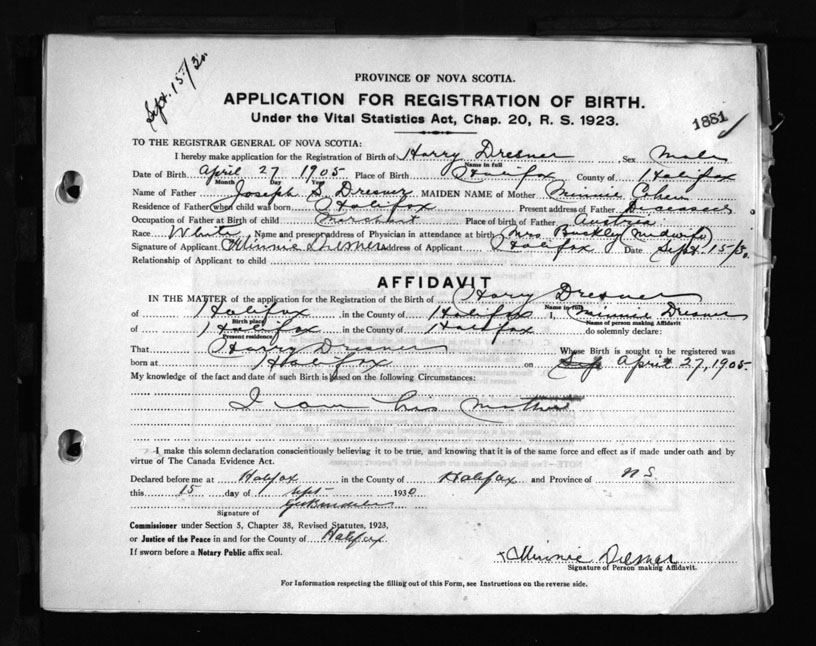 Sept. 15/30
PROVINCE OF NOVA SCOTIA.
APPLICATION FOR REGISTRATION OF BIRTH.
Under the Vital Statistics Act, Chap. 20, R. S. 1923.
1881
TO THE REGISTRAR GENERAL OF NOVA SCOTIA:
I hereby make application for the Registration of Birth of Harry Dresner Sex Male
Name in full
Date of Birth April 27 1905 Place of Birth Halifax County of Halifax
Month Day Year
Name of Father Joseph S. Dresner MAIDEN NAME of Mother Minnie
Residence of Father when child was born Halifax Present address of Father Deceased
Occupation of Father at Birth of child Merchant Place of birth of Father Austria
Race White Name and present address of Physician in attendance at birth Mrs Buckley (Midwife)
Signature of Applicant Minnie Dresner Address of Applicant Halifax Date Sept 15/30.
Relationship of Applicant to child
AFFIDAVIT
IN THE MATTER of the application for the Registration of the Birth of Harry Dresner
Name in full
of Halifax in the County of Halifax I, Minnie Dresner
Birth place Name of person making Affidavit
of Halifax in the County of Halifax do solemnly declare:
Present residence
That Harry Dresner Whose Birth is sought to be registered was
born at Halifax on April 27, 1905.
My knowledge of the fact and date of such Birth is based on the following Circumstances:
I am his mother
I make this solemn declaration conscientiously believing it to be true, and knowing that it is of the same force and effect as if made under oath and by
virtue of The Canada Evidence Act.
Declared before me at Halifax in the County of Halifax and Province of N S
this 15 day of Sept 1930
Signature of
Commissioner under Section 5, Chapter 38, Revised Statutes, 1923,
or Justice of the Peace in and for the County of Halifax
If sworn before a Notary Public affix seal.
x Minnie Dresner
Signature of Person making Affidavit.
For Information respecting the filling out of this Form, see Instructions on the reverse side.